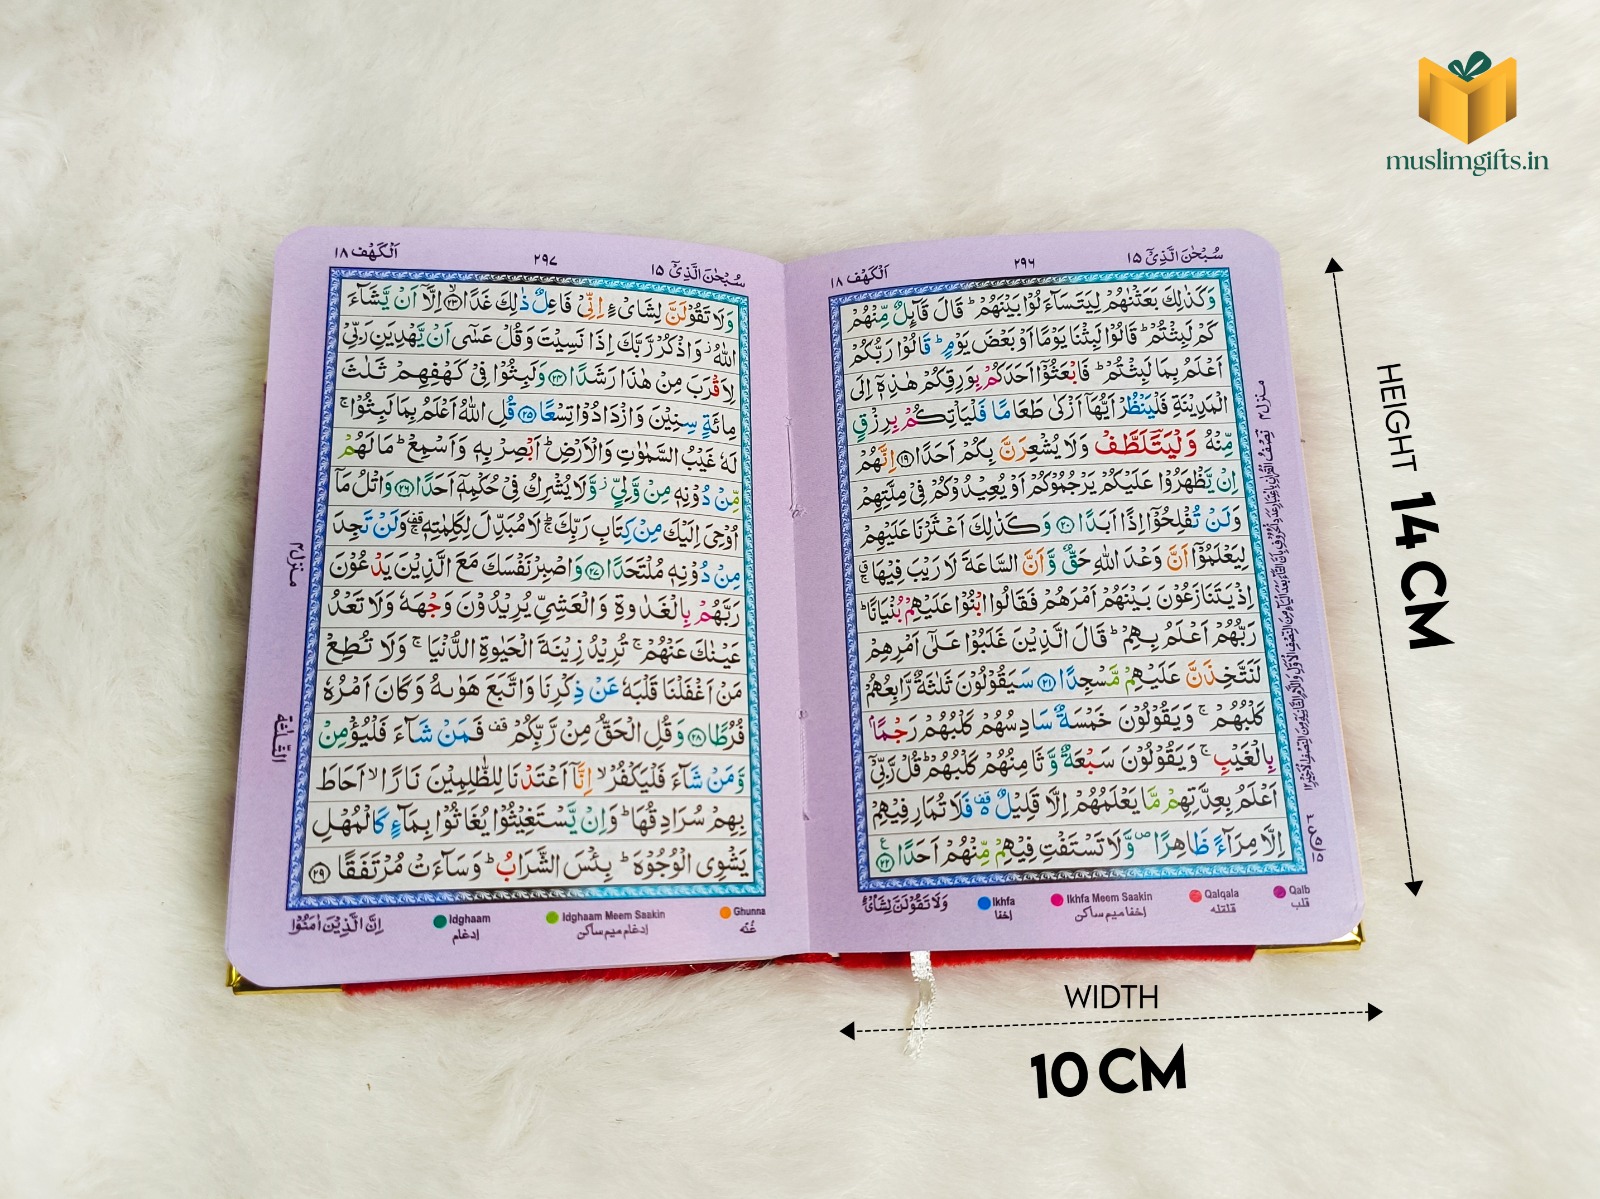 muslimgifts.in
سُبْحٰنَ الَّذِيْٓ ١٥
٢٩٦
اَلْكَهْف ١٨
وَكَذٰلِكَ بَعَثْنٰهُمْ لِيَتَسَآءَلُوْا بَيْنَهُمْ ؕ قَالَ قَآئِلٌ مِّنْهُمْ
كَمْ لَبِثْتُمْ ؕ قَالُوْا لَبِثْنَا يَوْمًا اَوْ بَعْضَ يَوْمٍ ؕ قَالُوْا رَبُّكُمْ
اَعْلَمُ بِمَا لَبِثْتُمْ ؕ فَابْعَثُوْٓا اَحَدَكُمْ بِوَرِقِكُمْ هٰذِهٖٓ اِلَى
الْمَدِيْنَةِ فَلْيَنْظُرْ اَيُّهَآ اَزْكٰى طَعَامًا فَلْيَاْتِكُمْ بِرِزْقٍ
مِّنْهُ وَلْيَتَلَطَّفْ وَلَا يُشْعِرَنَّ بِكُمْ اَحَدًا ١٩ اِنَّهُمْ
اِنْ يَّظْهَرُوْا عَلَيْكُمْ يَرْجُمُوْكُمْ اَوْ يُعِيْدُوْكُمْ فِيْ مِلَّتِهِمْ
وَلَنْ تُفْلِحُوْٓا اِذًا اَبَدًا ٢٠ وَكَذٰلِكَ اَعْثَرْنَا عَلَيْهِمْ
لِيَعْلَمُوْٓا اَنَّ وَعْدَ اللّٰهِ حَقٌّ وَّاَنَّ السَّاعَةَ لَا رَيْبَ فِيْهَا ۚ
اِذْ يَتَنَازَعُوْنَ بَيْنَهُمْ اَمْرَهُمْ فَقَالُوا ابْنُوْا عَلَيْهِمْ بُنْيَانًا ؕ
رَبُّهُمْ اَعْلَمُ بِهِمْ ؕ قَالَ الَّذِيْنَ غَلَبُوْا عَلٰٓى اَمْرِهِمْ
لَنَتَّخِذَنَّ عَلَيْهِمْ مَّسْجِدًا ٢١ سَيَقُوْلُوْنَ ثَلٰثَةٌ رَّابِعُهُمْ
كَلْبُهُمْ ۚ وَيَقُوْلُوْنَ خَمْسَةٌ سَادِسُهُمْ كَلْبُهُمْ رَجْمًۢا
بِالْغَيْبِ ۚ وَيَقُوْلُوْنَ سَبْعَةٌ وَّثَامِنُهُمْ كَلْبُهُمْ ؕ قُلْ رَّبِّيْٓ
اَعْلَمُ بِعِدَّتِهِمْ مَّا يَعْلَمُهُمْ اِلَّا قَلِيْلٌ ۫ فَلَا تُمَارِ فِيْهِمْ
اِلَّا مِرَآءً ظَاهِرًا ۪ وَّلَا تَسْتَفْتِ فِيْهِمْ مِّنْهُمْ اَحَدًا ٢٢
وَلَا تَقُوْلَنَّ لِشَايْءٍ
Ikhfa
إخفا
Ikhfa Meem Saakin
إخفا ميم ساكن
Qalqala
قلقله
Qalb
قلب
منزل ٤
سُبْحٰنَ الَّذِيْٓ ١٥
٢٩٧
اَلْكَهْف ١٨
وَلَا تَقُوْلَنَّ لِشَايْءٍ اِنِّيْ فَاعِلٌ ذٰلِكَ غَدًا ٢٣ اِلَّآ اَنْ يَّشَآءَ
اللّٰهُ ؗ وَاذْكُرْ رَّبَّكَ اِذَا نَسِيْتَ وَقُلْ عَسٰٓى اَنْ يَّهْدِيَنِ رَبِّيْ
لِاَقْرَبَ مِنْ هٰذَا رَشَدًا ٢٤ وَلَبِثُوْا فِيْ كَهْفِهِمْ ثَلٰثَ
مِائَةٍ سِنِيْنَ وَازْدَادُوْا تِسْعًا ٢٥ قُلِ اللّٰهُ اَعْلَمُ بِمَا لَبِثُوْا ۚ
لَهٗ غَيْبُ السَّمٰوٰتِ وَالْاَرْضِ ؕ اَبْصِرْ بِهٖ وَاَسْمِعْ ؕ مَا لَهُمْ
مِّنْ دُوْنِهٖ مِنْ وَّلِيٍّ ؗ وَّلَا يُشْرِكُ فِيْ حُكْمِهٖٓ اَحَدًا ٢٦ وَاتْلُ مَآ
اُوْحِيَ اِلَيْكَ مِنْ كِتَابِ رَبِّكَ ۚ لَا مُبَدِّلَ لِكَلِمٰتِهٖ ۚ وَلَنْ تَجِدَ
مِنْ دُوْنِهٖ مُلْتَحَدًا ٢٧ وَاصْبِرْ نَفْسَكَ مَعَ الَّذِيْنَ يَدْعُوْنَ
رَبَّهُمْ بِالْغَدٰوةِ وَالْعَشِيِّ يُرِيْدُوْنَ وَجْهَهٗ وَلَا تَعْدُ
عَيْنٰكَ عَنْهُمْ ۚ تُرِيْدُ زِيْنَةَ الْحَيٰوةِ الدُّنْيَا ۚ وَلَا تُطِعْ
مَنْ اَغْفَلْنَا قَلْبَهٗ عَنْ ذِكْرِنَا وَاتَّبَعَ هَوٰىهُ وَكَانَ اَمْرُهٗ
فُرُطًا ٢٨ وَقُلِ الْحَقُّ مِنْ رَّبِّكُمْ ۟ فَمَنْ شَآءَ فَلْيُؤْمِنْ
وَّمَنْ شَآءَ فَلْيَكْفُرْ ۙ اِنَّآ اَعْتَدْنَا لِلظّٰلِمِيْنَ نَارًا ۙ اَحَاطَ
بِهِمْ سُرَادِقُهَا ؕ وَاِنْ يَّسْتَغِيْثُوْا يُغَاثُوْا بِمَآءٍ كَالْمُهْلِ
يَشْوِي الْوُجُوْهَ ؕ بِئْسَ الشَّرَابُ ؕ وَسَآءَتْ مُرْتَفَقًا ٢٩
اِنَّ الَّذِيْنَ اٰمَنُوْا
Idghaam
إدغام
Idghaam Meem Saakin
إدغام ميم ساكن
Ghunna
غُنّه
منزل ٤
الثلثة
HEIGHT 14 CM
WIDTH
10 CM